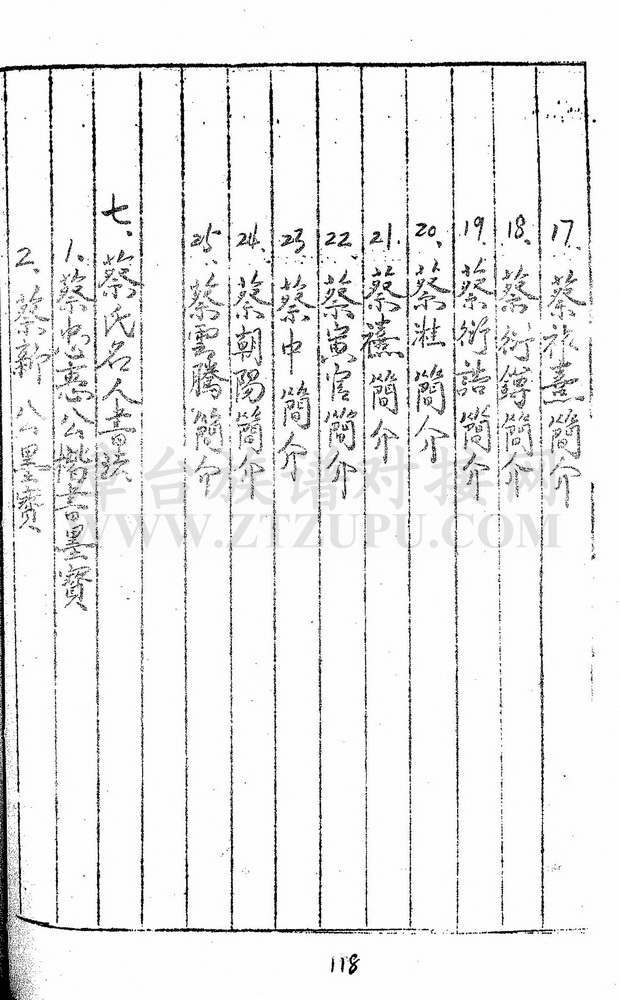 17. 蔡祚熹簡介
18. 蔡衍鎛簡介
19. 蔡衍誥簡介
20. 蔡雄簡介
21. 蔡禧簡介
22. 蔡寅宮簡介
23. 蔡中簡介
24. 蔡朝陽簡介
25. 蔡雲騰簡介
七、蔡氏名人書
1. 蔡忠惠公楷書墨寶
2. 蔡新公墨寶
118
台族谱对接网
WWW.ZTZUPU.COM